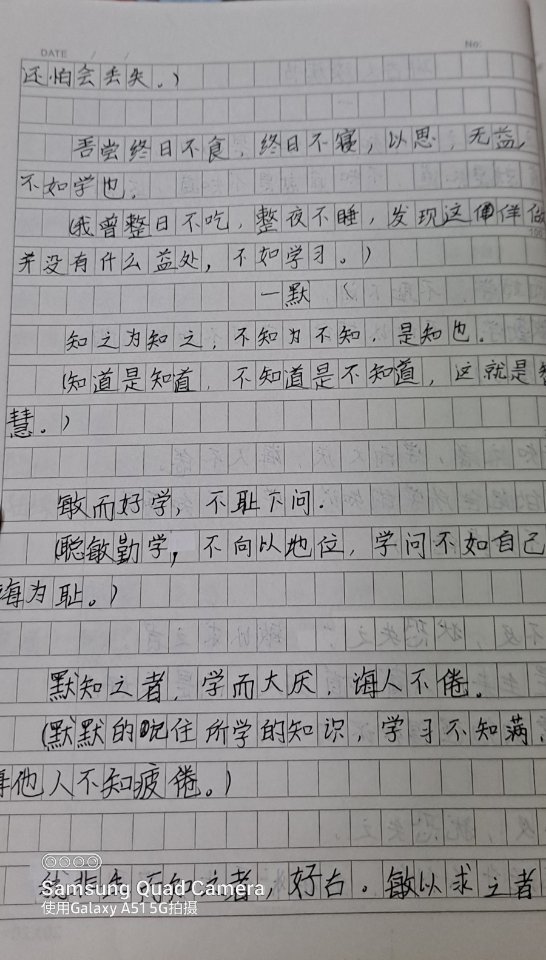 DATE / / No:
还怕会丢失。)
吾尝终日不食,终日不寝,以思,无益,
不如学也.
(我曾整日不吃,整夜不睡,发现这样做
并没有什么益处,不如学习。)
一默
知之为知之,不知为不知.是知也.
(知道是知道.不知道是不知道,这就是智
慧。)
敏而好学,不耻下问.
(聪敏勤学,不向以地位,学问不如自己
为耻。)
默知之者,学而大厌.诲人不倦.
(默默的记住所学的知识,学习不知满,
他人不知疲倦。)
知之者,好古。敏以求之者
Samsung Quad Camera
使用Galaxy A51 5G拍摄